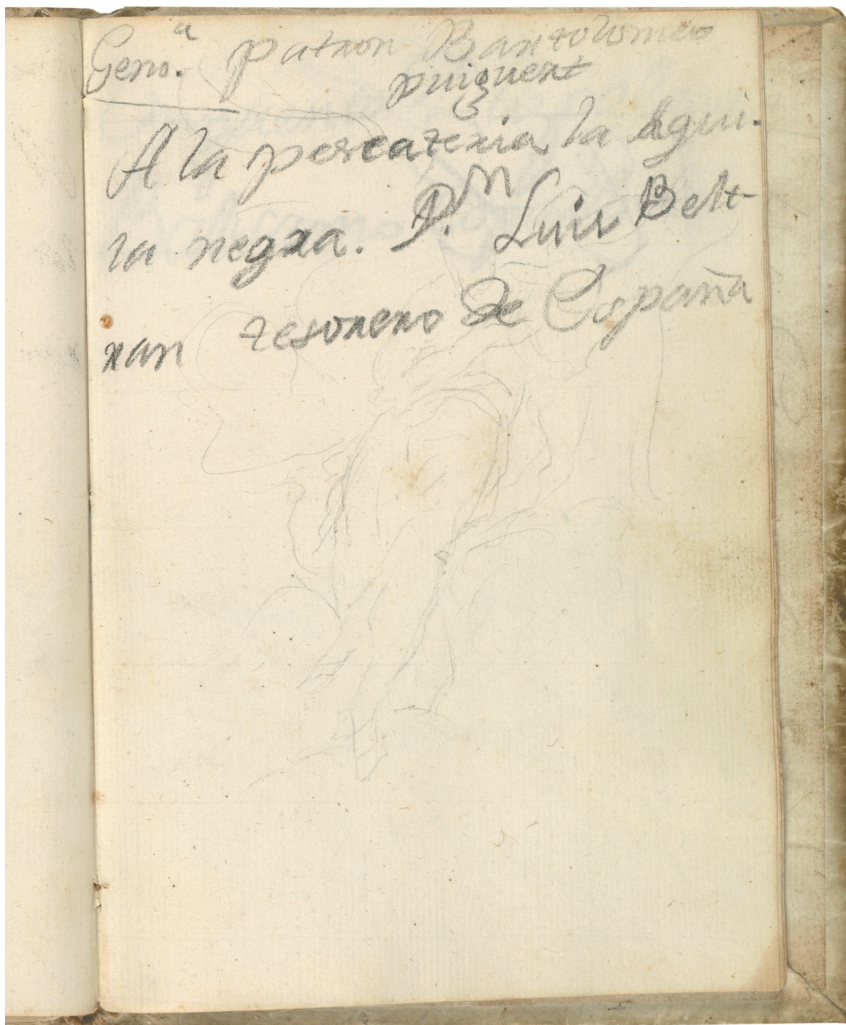 Geno.ª patron Bartolomeo
puiguert
A la pescateria la Agui-
la negra. D.n Luis Belt-
ran tesorero De España